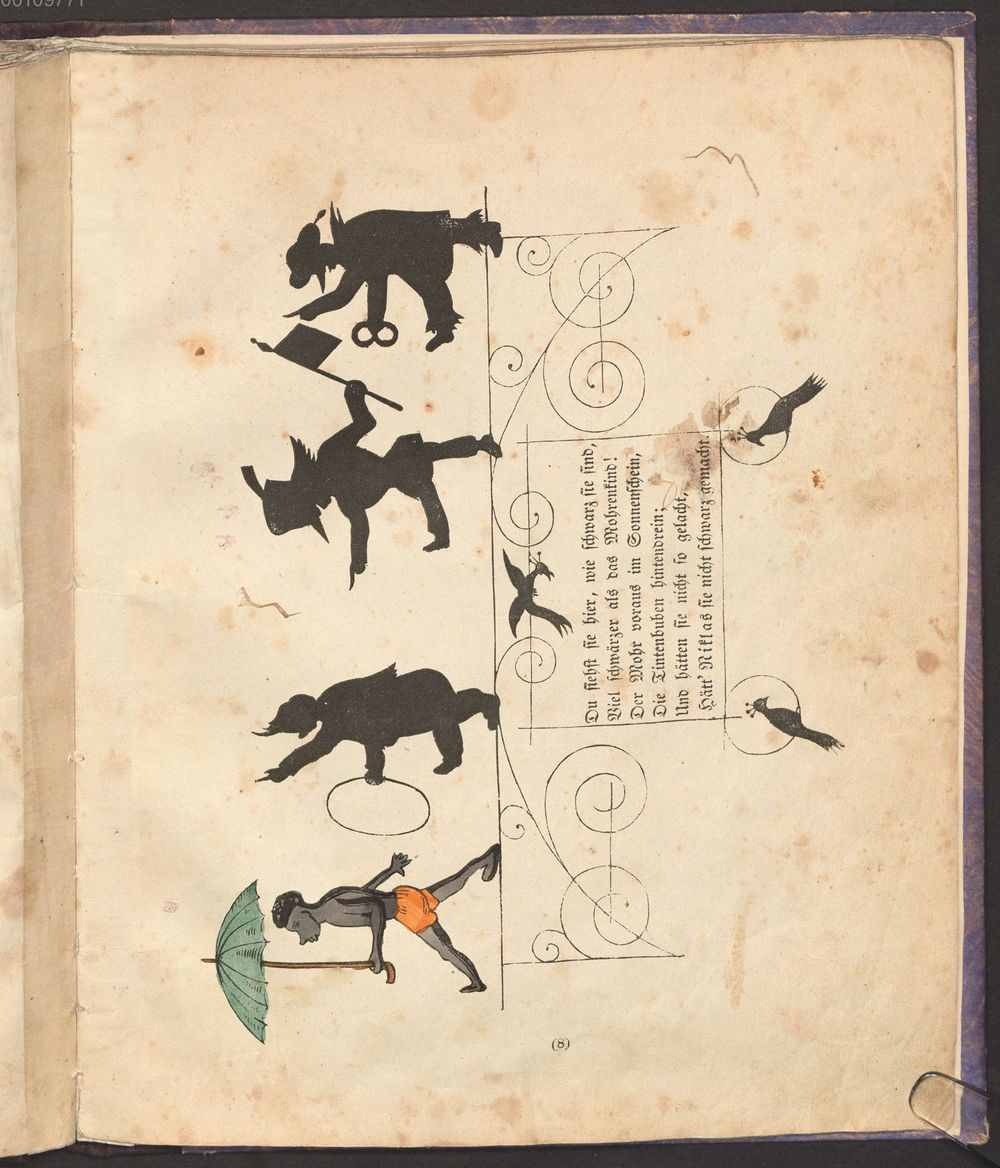 00109771
Du siehst sie hier, wie schwarz sie sind,
Viel schwärzer als das Mohrenkind!
Der Mohr voraus im Sonnenschein,
Die Tintenbuben hintendrein;
Und hätten sie nicht so gelacht,
Hätt' Niklas sie nicht schwarz gemacht.
(8)